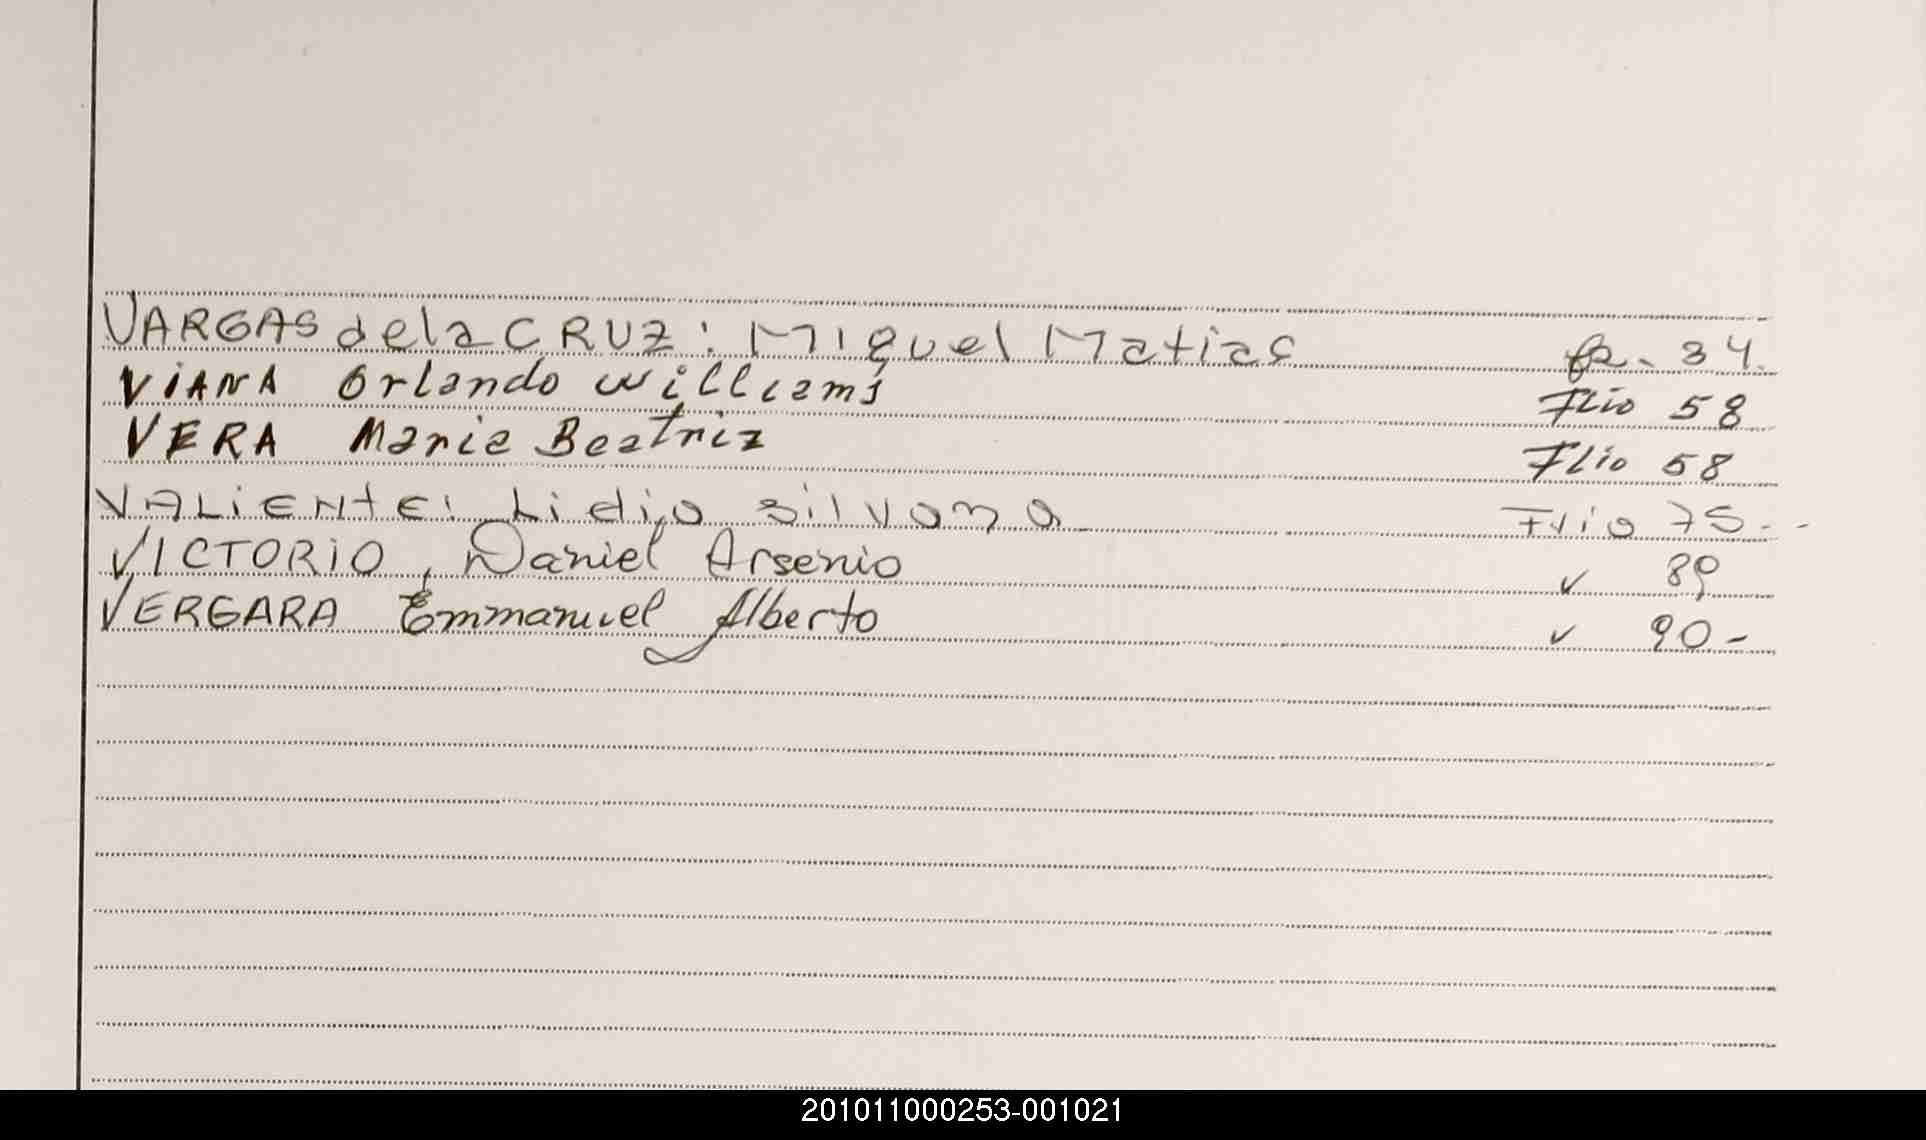 VARGAS de la CRUZ: Miguel Matias fs. 34.
ViANA Orlando williams Flio 58
VERA Maria Beatriz Flio 58
VALiENtE: Lidia silvana Flio 75.-
VICTORiO, Daniel Arsenio ✓ 89
VERGARA Emmanuel Alberto ✓ 90-
201011000253-001021